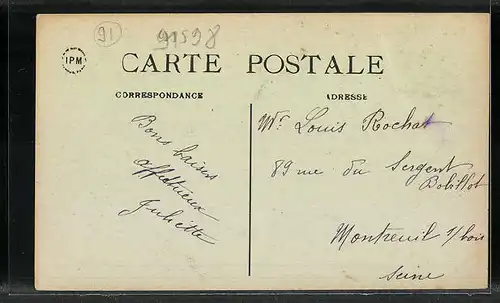 91
91598
IPM
CARTE POSTALE
CORRESPONDANCE
ADRESSE
Bons baisers
affectueux
Juliette
Mr Louis Rochat
89 rue du Sergent
Bobillot
Montreuil s/bois
Seine